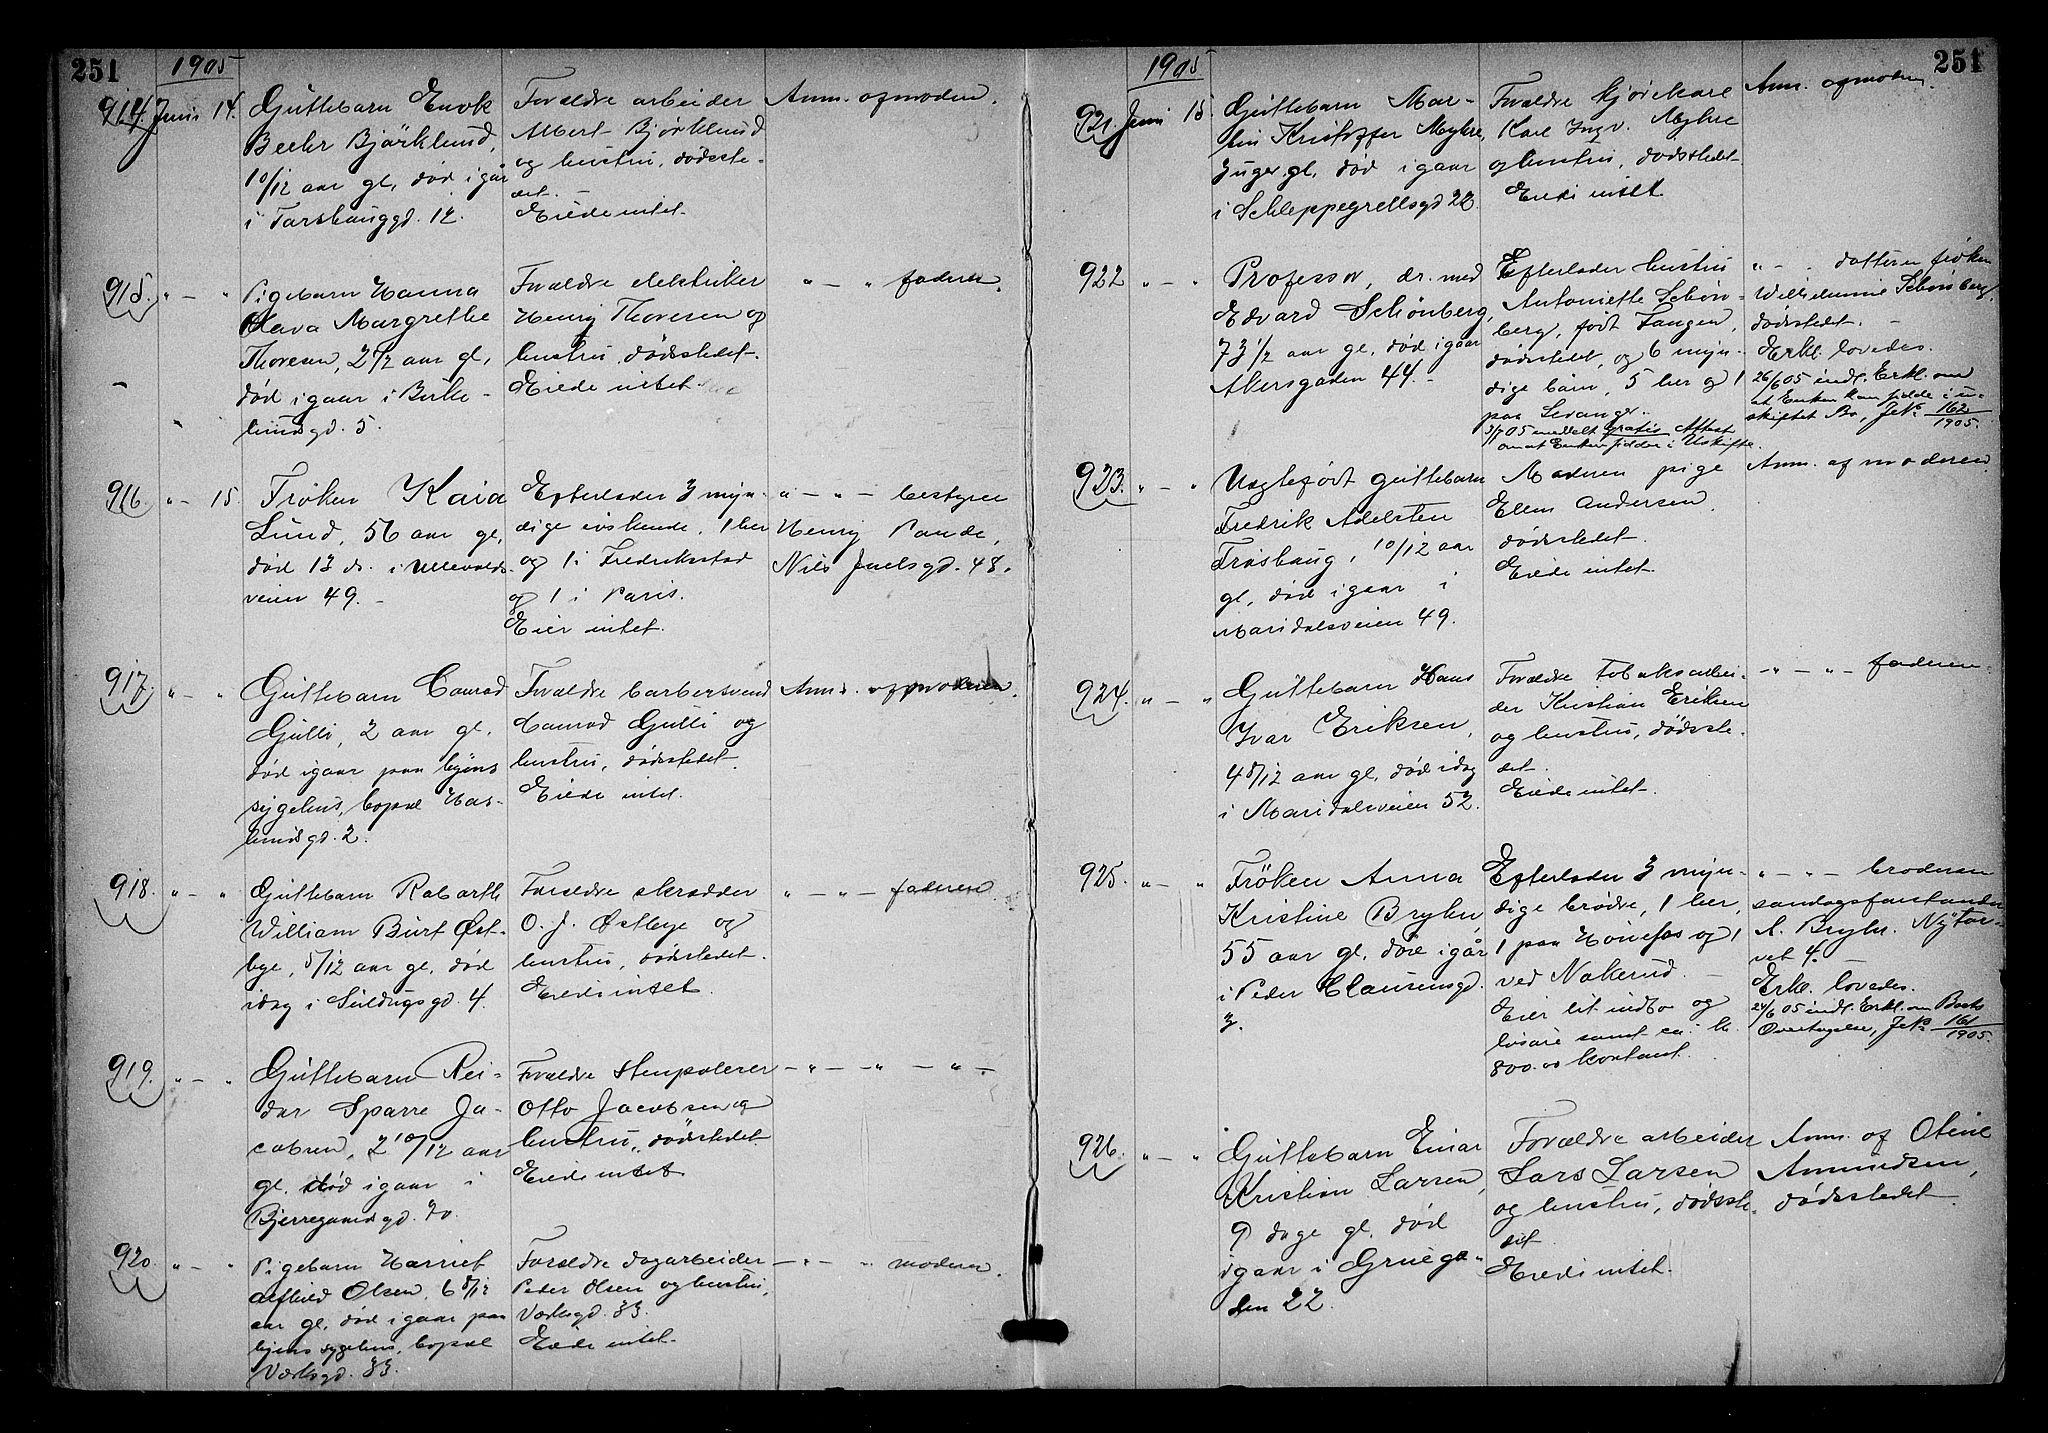 251
1905
914. Juni 14.
Guttebarn Enok
Beehr Bjørklund,
10/12 aar gl, død igår
i Torshauggd. 12.
Forældre arbeider
Albert Bjørklund
og hustru, dødsste-
det.
Eiede intet.
Anm. af moderen.
915. " — "
Pigebarn Hanna
Olava Margrethe
Thoresen, 2 1/2 aar gl,
død igaar i Birke-
lundsgd. 5.
Forældre elektriker
Henry Thoresen og
hustru, dødsstedet.
Eiede intet.
" — " faderen.
916. " — 15.
Frøken Kaia
Lund, 56 aar gl,
død 13 ds. i Ullevolds-
veien 49.
Efterlader 3 myn-
dige søskende, 1 her
og 1 i Fredriksstad
og 1 i Paris.
Eier intet.
" — " — bestyrer
Henry Paude,
Nils Juelsgd. 48.
917. " — "
Guttebarn Conrad
Gulli, 2 aar gl.
død igaar paa byens
sygehus, bopæl Has-
lundsgd. 2.
Forældre barbersvend
Conrad Gulli og
hustru, dødsstedet.
Eiede intet.
Anm. af moderen.
918. " — "
Guttebarn Robarth
William Burt Øst-
bye, 5/12 aar gl, død
idag i Suldugsgd. 4.
Forældre skrædder
O. J. Østbye og
hustru, dødsstedet.
Eiede intet.
" — " — faderen
919. " — "
Guttebarn Rei-
dar Sparre Ja-
cobsen, 2 10/12 aar
gl. død igaar i
Bjerregaardsgd. 70.
Forældre Stenpolerer
Otto Jacobsen og
hustru, dødsstedet
Eiede intet
— " — " — " —
920. " — "
Pigebarn Harriet
Alfhild Olsen, 6 5/12
aar gl, død igaar paa
byens sygehus, bopæl
Værksgd. 33.
Forældre dagarbeider
Peder Olsen og hustru,
Værksgd. 33.
Eiede intet.
— " — " moderen.
251
1905
921. Juni 15.
Guttebarn Mar-
tin Kristoffer Myhre,
3 uger gl, død igaar
i Schleppegrellsgd 22.
Forældre kjørekarl
Karl Ingv. Myhre
og hustru, dødsstedet
Eiede intet
Anm. af moderen.
922 " — "
Professor, dr. med
Edvard Schönberg,
73 1/2 aar gl, død igaar
Akersgaden 44.
Efterlader hustru
Antoniette Schön-
berg, født Fangen,
dødsstedet, og 6 myn-
dige børn, 5 her og 1
paa Levanger.
3/7 05 meddelt gratis Attest
om at Enken sidder i Uskifte.
" — " datteren frøken
Wilhelmine Schönberg,
dødsstedet. —
Erkl. lovedes.
26/6 05 indl. Erkl. om
at Enken kan sidde i u-
skiftet Bo, JNo 162/1905.
923. " — "
Uægtefødt guttebarn
Fredrik Adelsten
Frøshaug, 10/12 aar
gl, død igaar i
Maridalsveien 49.
Moderen pige
Elen Andersen,
dødsstedet.
Eiede intet
Anm. af moderen
924. " — "
Guttebarn Hans
Ivar Eriksen,
4 5/12 aar gl, død idag
i Maridalsveien 52.
Forældre tobaksarbei-
der Kristian Eriksen
og hustru, dødsste-
det.
Eiede intet.
— " — " — faderen.
925. " — "
Frøken Anna
Kristine Bryhn,
55 aar gl, død igår
i Peder Clausensgd.
3.
Efterlader 3 myn-
dige brødre, 1 her,
1 paa Hønefos og 1
ved Nakerud. —
Eier lit indbo og
løsøre samt ca. kr.
800.00 kontant.
— " — " — broderen
søndagsforstander
A. Bryhn. Nytor-
vet 4.
Erkl. lovedes.
24/6 05 indl. Erkl. om Boets
Overtagelse, JNo 161/1905.
926. " — "
Guttebarn Einar
Kristian Larsen,
9 dage gl, død
igaar i Gruega-
den 22.
Forældre arbeider
Lars Larsen
og hustru, dødsste-
det
Eiede intet.
Anm. af Otine
Amundsen,
dødsstedet